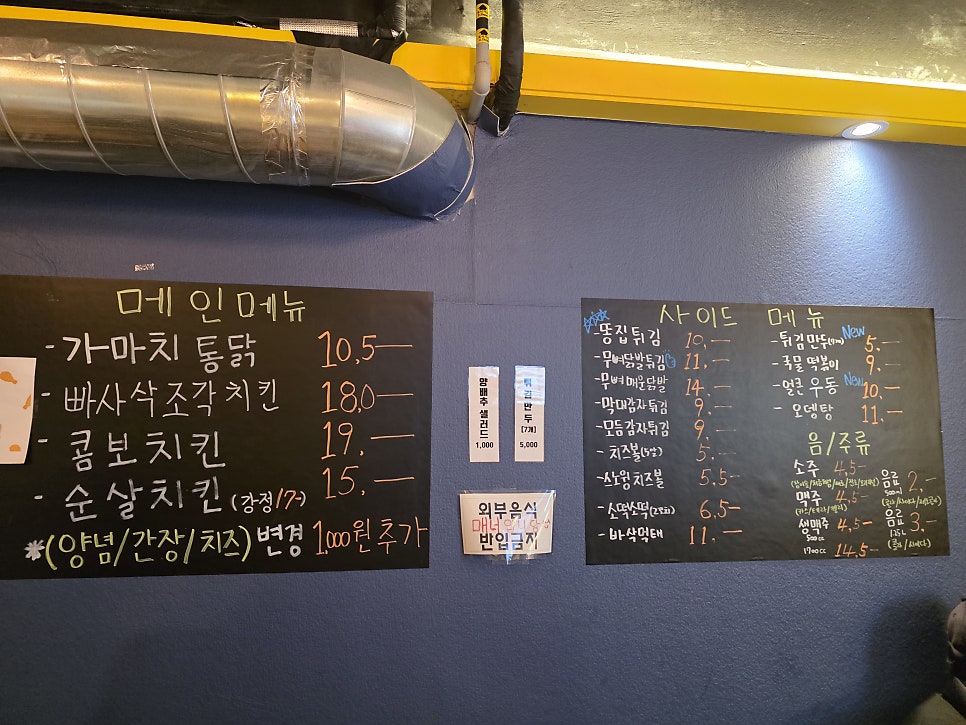 메인메뉴
- 가마치통닭 10,5—
- 빠사삭조각치킨 18,0—
- 콤보치킨 19.—
- 순살치킨 (강정/가) 15.—
*(양념/간장/치즈) 변경 1,000원추가
양배추 샐러드 1,000
튀김만두 [7개] 5,000
외부음식
반입금지
사이드 메뉴
- 똥집튀김 10.—
- 무뼈닭발튀김 11.—
- 무뼈매운닭발 14—
- 막대감자튀김 9.—
- 모듬감자튀김 9.—
- 치즈볼(5알) 5.—
- 소떡소떡(2꼬치) 6,5—
- 바삭먹태 11.—
- 튀김만두(7개) New 5.—
- 국물떡볶이 9.—
- 얼큰우동 New 10.—
- 오뎅탕 11.—
음/주류
소주 4,5—
맥주 4,5—
(카스/테라/켈리)
생맥주 500cc 4,5—
1700cc 14,5—
음료 500ml 2.—
음료 1.25L 3.—
(콜라/사이다)